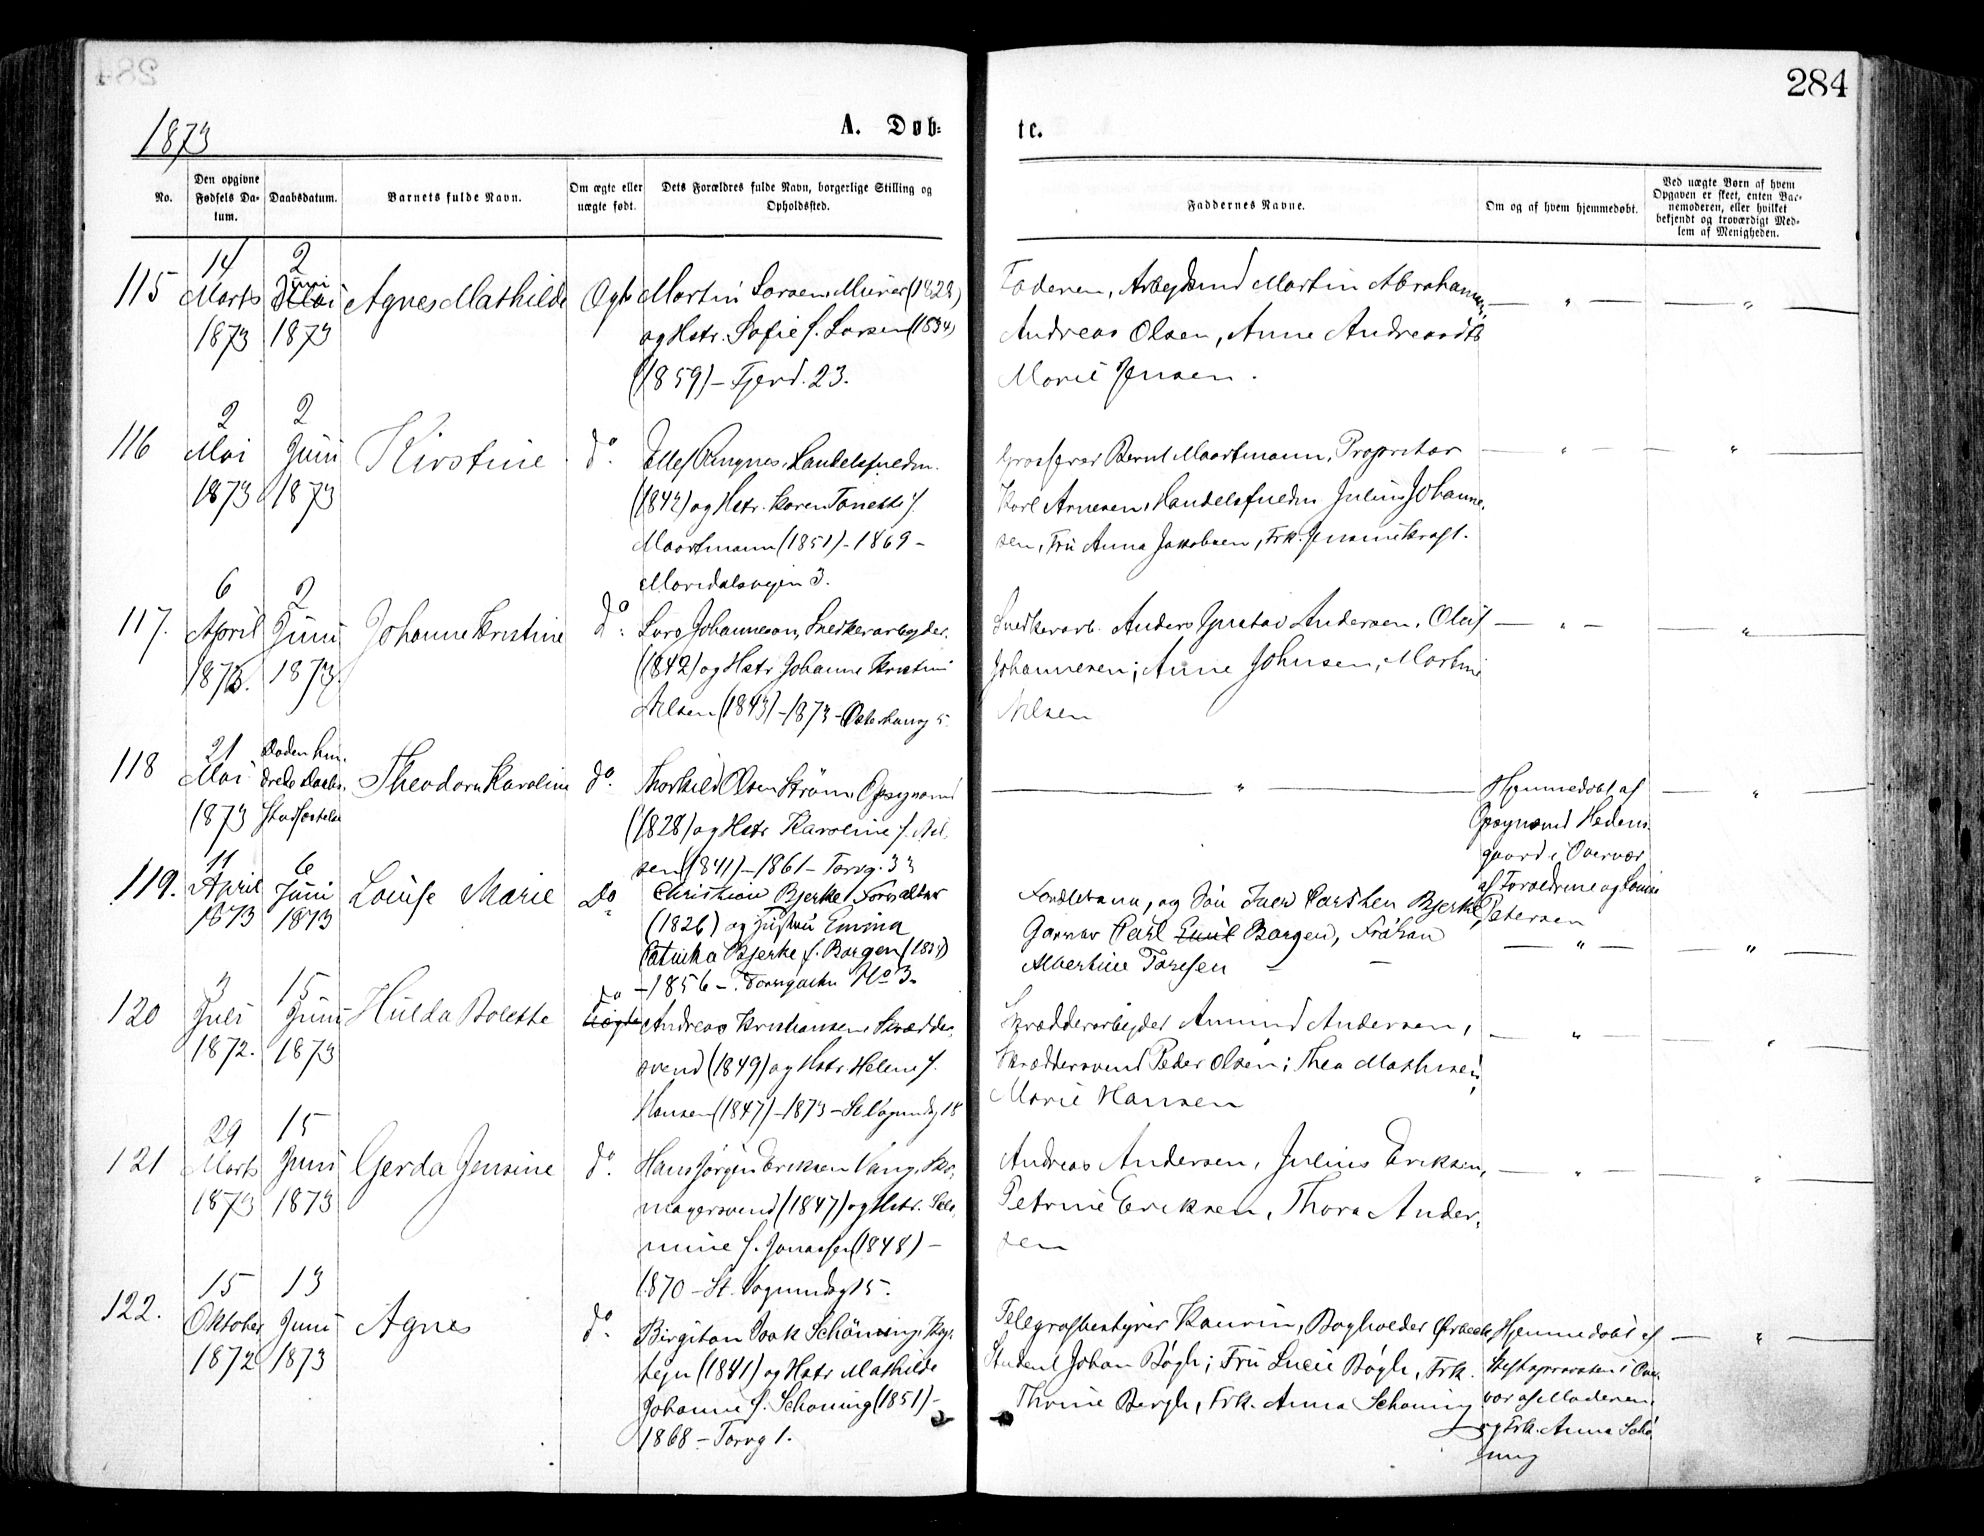 284
1873
A. Døb-
te.
No.
Den opgivne Fødsels Da-
tum.
Daabsdatum.
Barnets fulde Navn.
Om ægte eller uægte født.
Dets Forældres fulde Navn, borgerlige Stilling og Opholdssted.
Faddernes Navne.
Om og af hvem hjemmedøbt.
Ved uægte Børn af hvem Opgaven er skeet, enten Bar-
nemoderen, eller hvilket bekjendt og troværdigt Med-
lem af Menigheden.
115
14 Marts 1873
2 Juni Mai 1873
Agnes Mathilde
Ægte
Martin Larsen, Murer (1828)
og Hstr. Sofie f. Larsen (1834)
(1859) - Fjerd. 23.
Faderen, Arbeidsmd Martin Abrahamsen,
Andreas Olsen, Anne Andreasdtr
Marie Jensen.
116
2 Mai 1873
2 Juni 1873
Kirstine
do.
Ellef Ringnes, Handelsfuldm.
(1842) og Hstr. Karen Tonette f.
Maartmann (1851) - 1869 -
Maridalsvejen 3.
Grosserer Bernt Maartmann, Proprietær
Karl Arnesen, Handelsfuldm Julius Johanne-
sen, Fru Anna Jakobsen, Frk. Jensine Kraft.
117.
6 April 1873.
2 Juni 1873.
Johanne Kristine
do.
Lars Johannesen, Snedkerarbeider,
(1842) og Hstr Johanne Kristine
Nilsen (1843) - 1873 - Osterhaug 5
Snedkerarb. Anders Gustav Andersen, Oluf
Johannesen; Anne Johnsen, Martine
Nilsen
118
21 Mai 1873
Døden hin-
drede Daabs-
stadfæstelse
Theodora Karoline
do.
Thorkild Olsen Strøm, Opsynsmd
(1828) og Hstr Karoline f. Nil-
sen (1841) - 1861 - Torvg. 33
Hjemmedøbt af
Opsynsmd Hedens-
gaard i Overvær
af Forældrene og Louise
Petersen
119.
11 April 1873
6 Juni 1873
Louise Marie
Do
Christian Bjerke, Forvalter
(1826) og Hustru Emma
Catinka Bjerke f. Borgen (1831)
- 1856 - Torvgaden No 3.
Forældrene, og Søn Iver Carsten Bjerke,
Garver Carl Emil Borgen, Frøken
Albertine Toresen
120
3 Juli 1872.
15 Juni 1873
Hulda Bolette
do
Uægte
Andreas Kristiansen, Skrædder-
svend (1849) og Hstr Helene f.
Hansen (1847) - 1873 - St. Vognmdsg 18
Skrædderarbeider Amund Andersen,
Skræddersvend Peder Olsen; Thea Mathisen,
Marie Hansen
121
29 Marts 1873
15 Juni 1873
Gerda Jensine
do.
Hans Jørgen Eriksen Vang, Sko-
magersvend (1847) og Hstr. Sela-
mine f. Jonassen (1848) -
1870 - St. Vognmdsg 15.
Andreas Andersen, Julius Eriksen,
Petrine Eriksen, Thora Ander-
sen
122.
15 Oktober 1872
13 Juni 1873
Agnes
do.
Birgitan Vook Schöning, Kap-
tejn (1841) og Hstr Mathilde
Johanne f. Schøning (1851) -
1868 - Torvg 1.
Telegrafbestyrer Kaurin, Bogholder Ørbech,
Student Johan Bøgh; Fru Lucie Bøgh, Frk.
Thrine Bergh, Frk. Anna Schøning
Hjemmedøbt af
Stiftsprovsten i Over-
vær af Moderen,
og Frk. Anna Schø-
ning